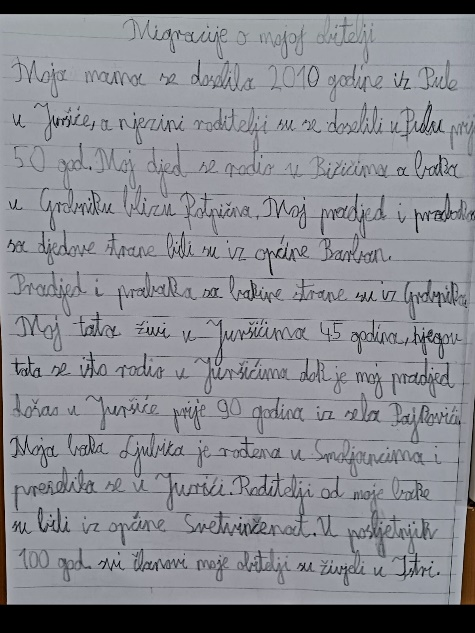 Migracije o mojoj obitelji
Moja mama se doselila 2010 godine iz Pule
u Juršiće, a njezini roditelji su se doselili u Pulu prije
50 god. Moj djed se rodio u Bižićima a baka
u Grobniku blizu Potpićna. Moj pradjed i prabaka
sa djedove strane bili su iz općine Barban.
Pradjed i prabaka sa bakine strane su iz Grobnika.
Moj tata živi u Juršićima 45 godina, njegov
tata se isto rodio u Juršićima dok je moj pradjed
došao u Juršiće prije 90 godina iz sela Pajkovići.
Moja baka Ljubica je rođena u Smoljancima i
preselila se u Juršići. Roditelji od moje bake
su bili iz općine Svetvinčenat. U posljetnjih
100 god svi članovi moje obitelji su živjeli u Istri.